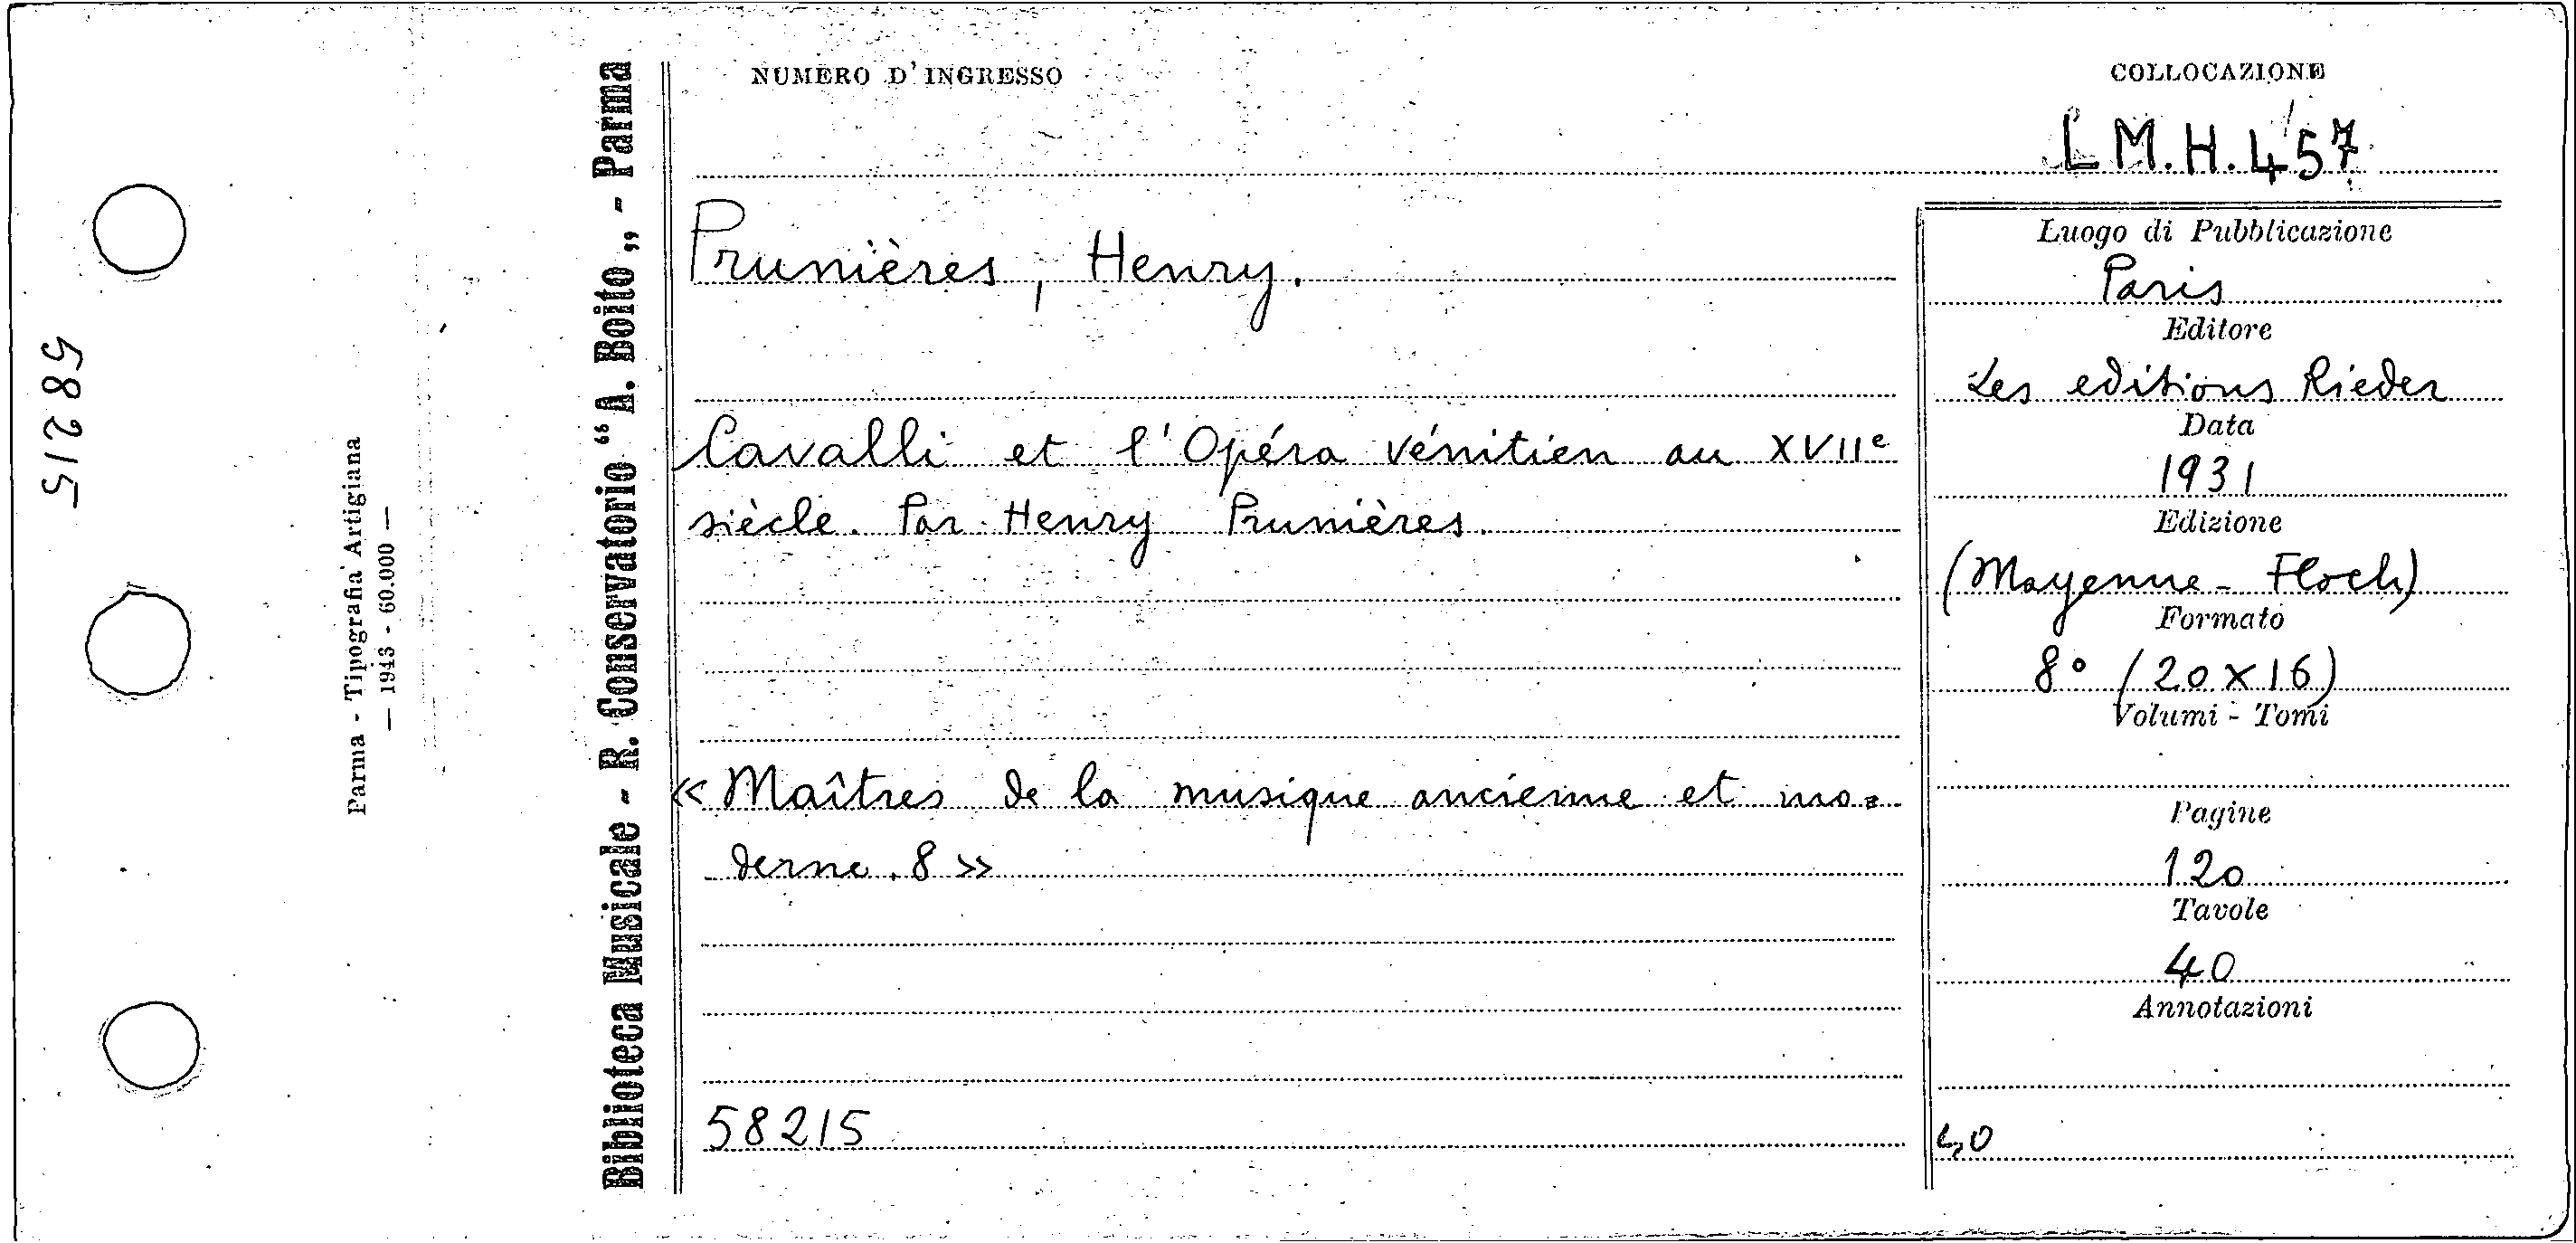 58215
Parma - Tipografia Artigiana
— 1943 - 60.000 —
Biblioteca Musicale - R. Conservatorio “A. Boito„ - Parma
NUMERO D'INGRESSO
COLLOCAZIONE
L M.H.457
Prunières, Henry.
Cavalli et l'Opéra vénitien au XVIIe
siècle. Par Henry Prunières.
« Maîtres de la musique ancienne et mo=
derne. 8 »
58215
Luogo di Pubblicazione
Paris
Editore
Les editions Rieder
Data
1931
Edizione
(Mayenne - Floch)
Formato
8° (20x16)
Volumi - Tomi
Pagine
120
Tavole
40
Annotazioni